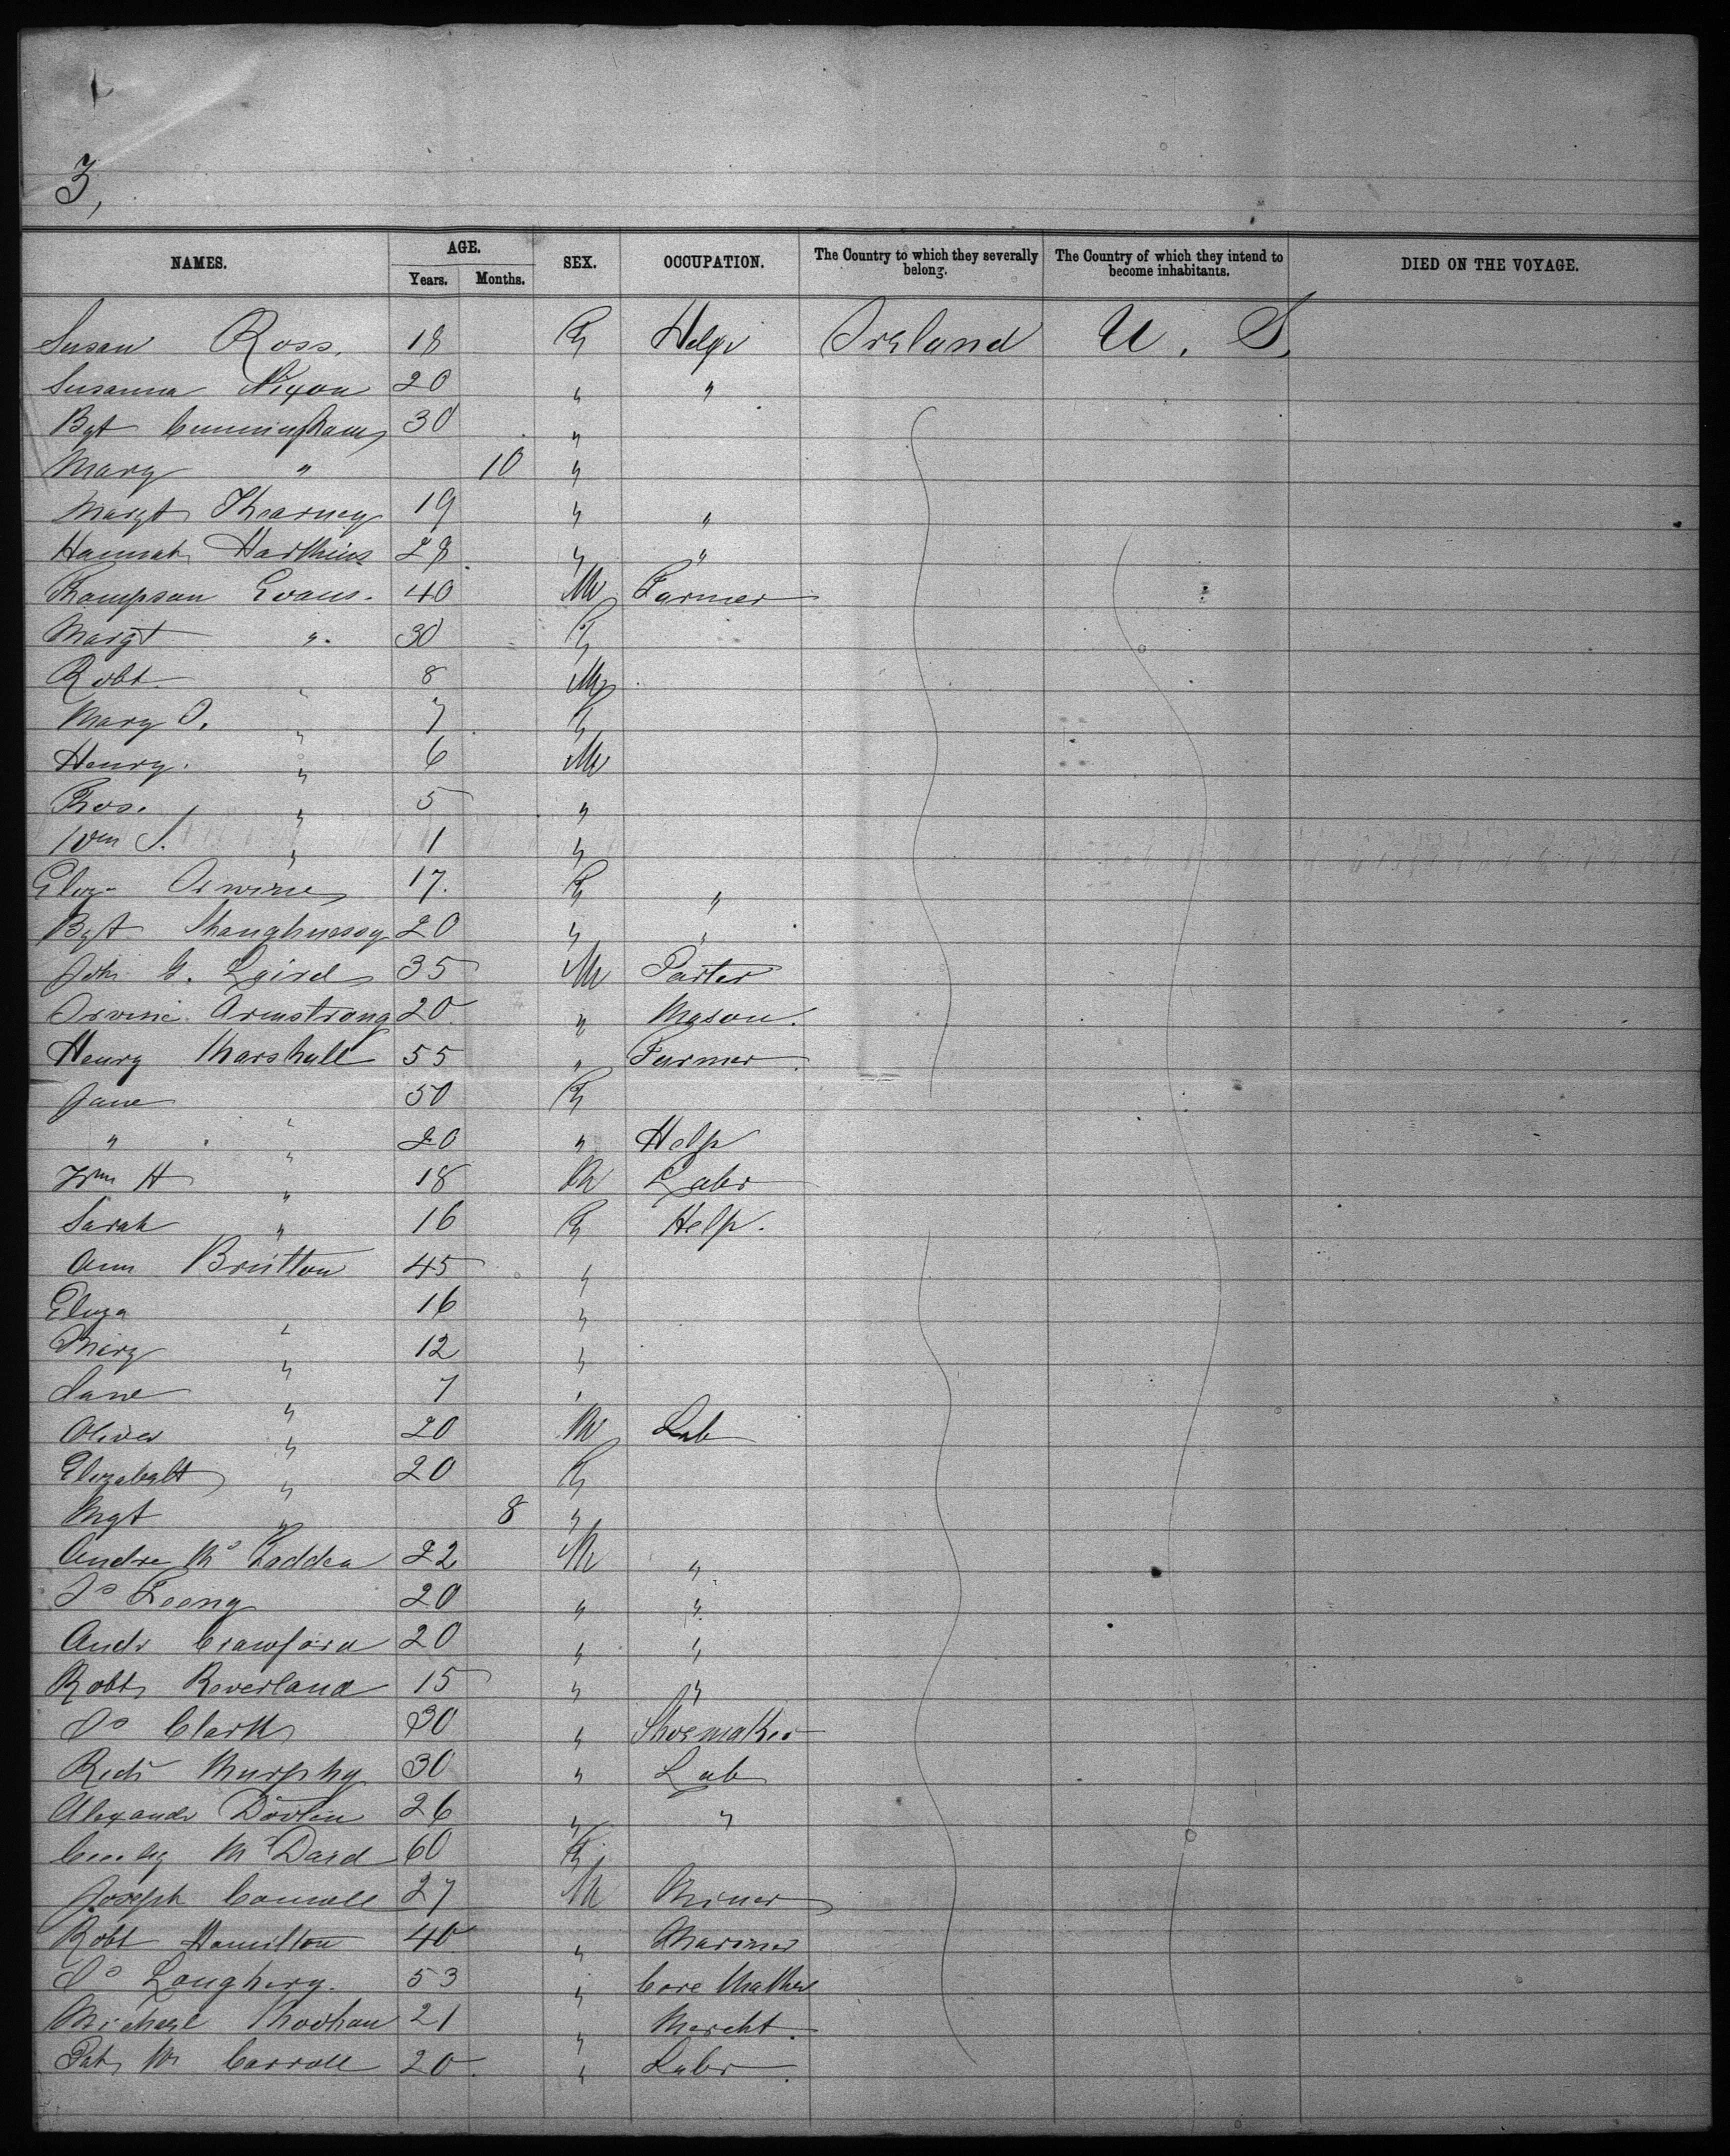 3,
NAMES. AGE. SEX. OCCUPATION. The Country to which they severally belong. The Country of which they intend to become inhabitants. DIED ON THE VOYAGE.
Years. Months.
Susan Ross. 18 F Help Ireland U. S.
Susanna Nixon 20 " "
Bgt Cunningham 30 "
Mary " 10 "
Margt Kearney 19 " "
Hannah Harkins 28 " "
Thompson Evans. 40 M Farmer
Margt " 30 F
Robt " 8 M
Mary J. " 7 F
Henry. " 6 M
Thos. " 5 "
Wm J. " 1 "
Eliza Irvine 17. F "
Bgt Shaughnessy 20 " "
Joh G. Laird 35 M Porter
Irvine Armstrong 20 " Mason.
Henry Marshall 55 " Farmer
Jane " 50 F
" " 20 " Help
Wm H " 18 M Labr
Sarah " 16 F Help.
Ann Britton 45 "
Eliza " 16 "
Mary " 12 "
Jane " 7 "
Oliver " 20 M Lab
Elizabeth " 20 F
Mgt " 8 "
Andre Mc Fadden 22 M "
Jo Feeny 20 " "
Andr Crawford 20 " "
Robt Reverland 15 " "
Jo Clark 30 " Shoemaker
Richd Murphy 30 " Lab
Alexandr Devlin 26 " "
Mc Dard 60 F
Joseph Connell 27 M Miner
Robt Hamilton 40 " Mariner
Jo Loughery. 53 "
Michael 21 " Mercht.
Pat Mc Carroll 20. " Labr.